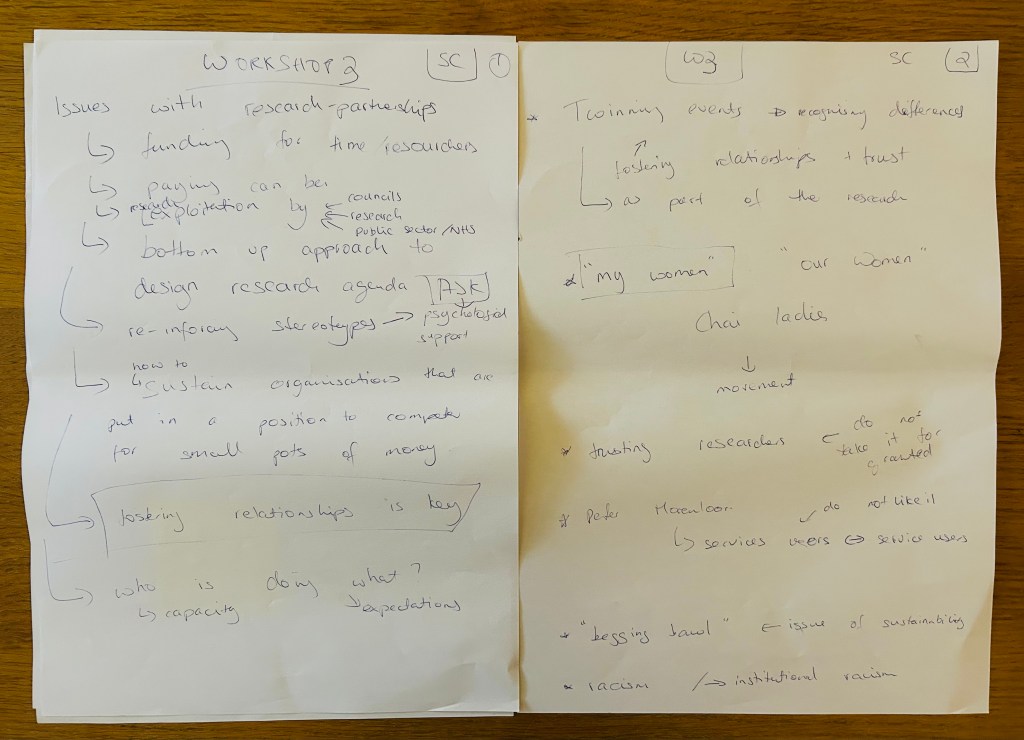 WORKSHOP 3 SC 1
Issues with research-partnerships
↳ funding for time/researchers
↳ paying can be
↳ research exploitation by ← councils
← research
← public sector/NHS
↳ bottom up approach to
design research agenda ASK
↳ re-inforcing stereotypes → psychological
support
how to
↳ sustain organisations that are
put in a position to compete
for small pots of money
fostering relationships is key
↳ who is doing what?
↳ capacity ↳ expectations
W3 SC 2
* Twinning events → recognising differences
↑
fostering relationships + trust
↳ as part of the research
* "my women" "our women"
Chai ladies
↓
movement
* trusting researchers ← do not
take it for
granted
* Peter
do not like it
↳ services users ⇔ service users
* "begging bawl" ← issue of sustainability
* racism → institutional racism